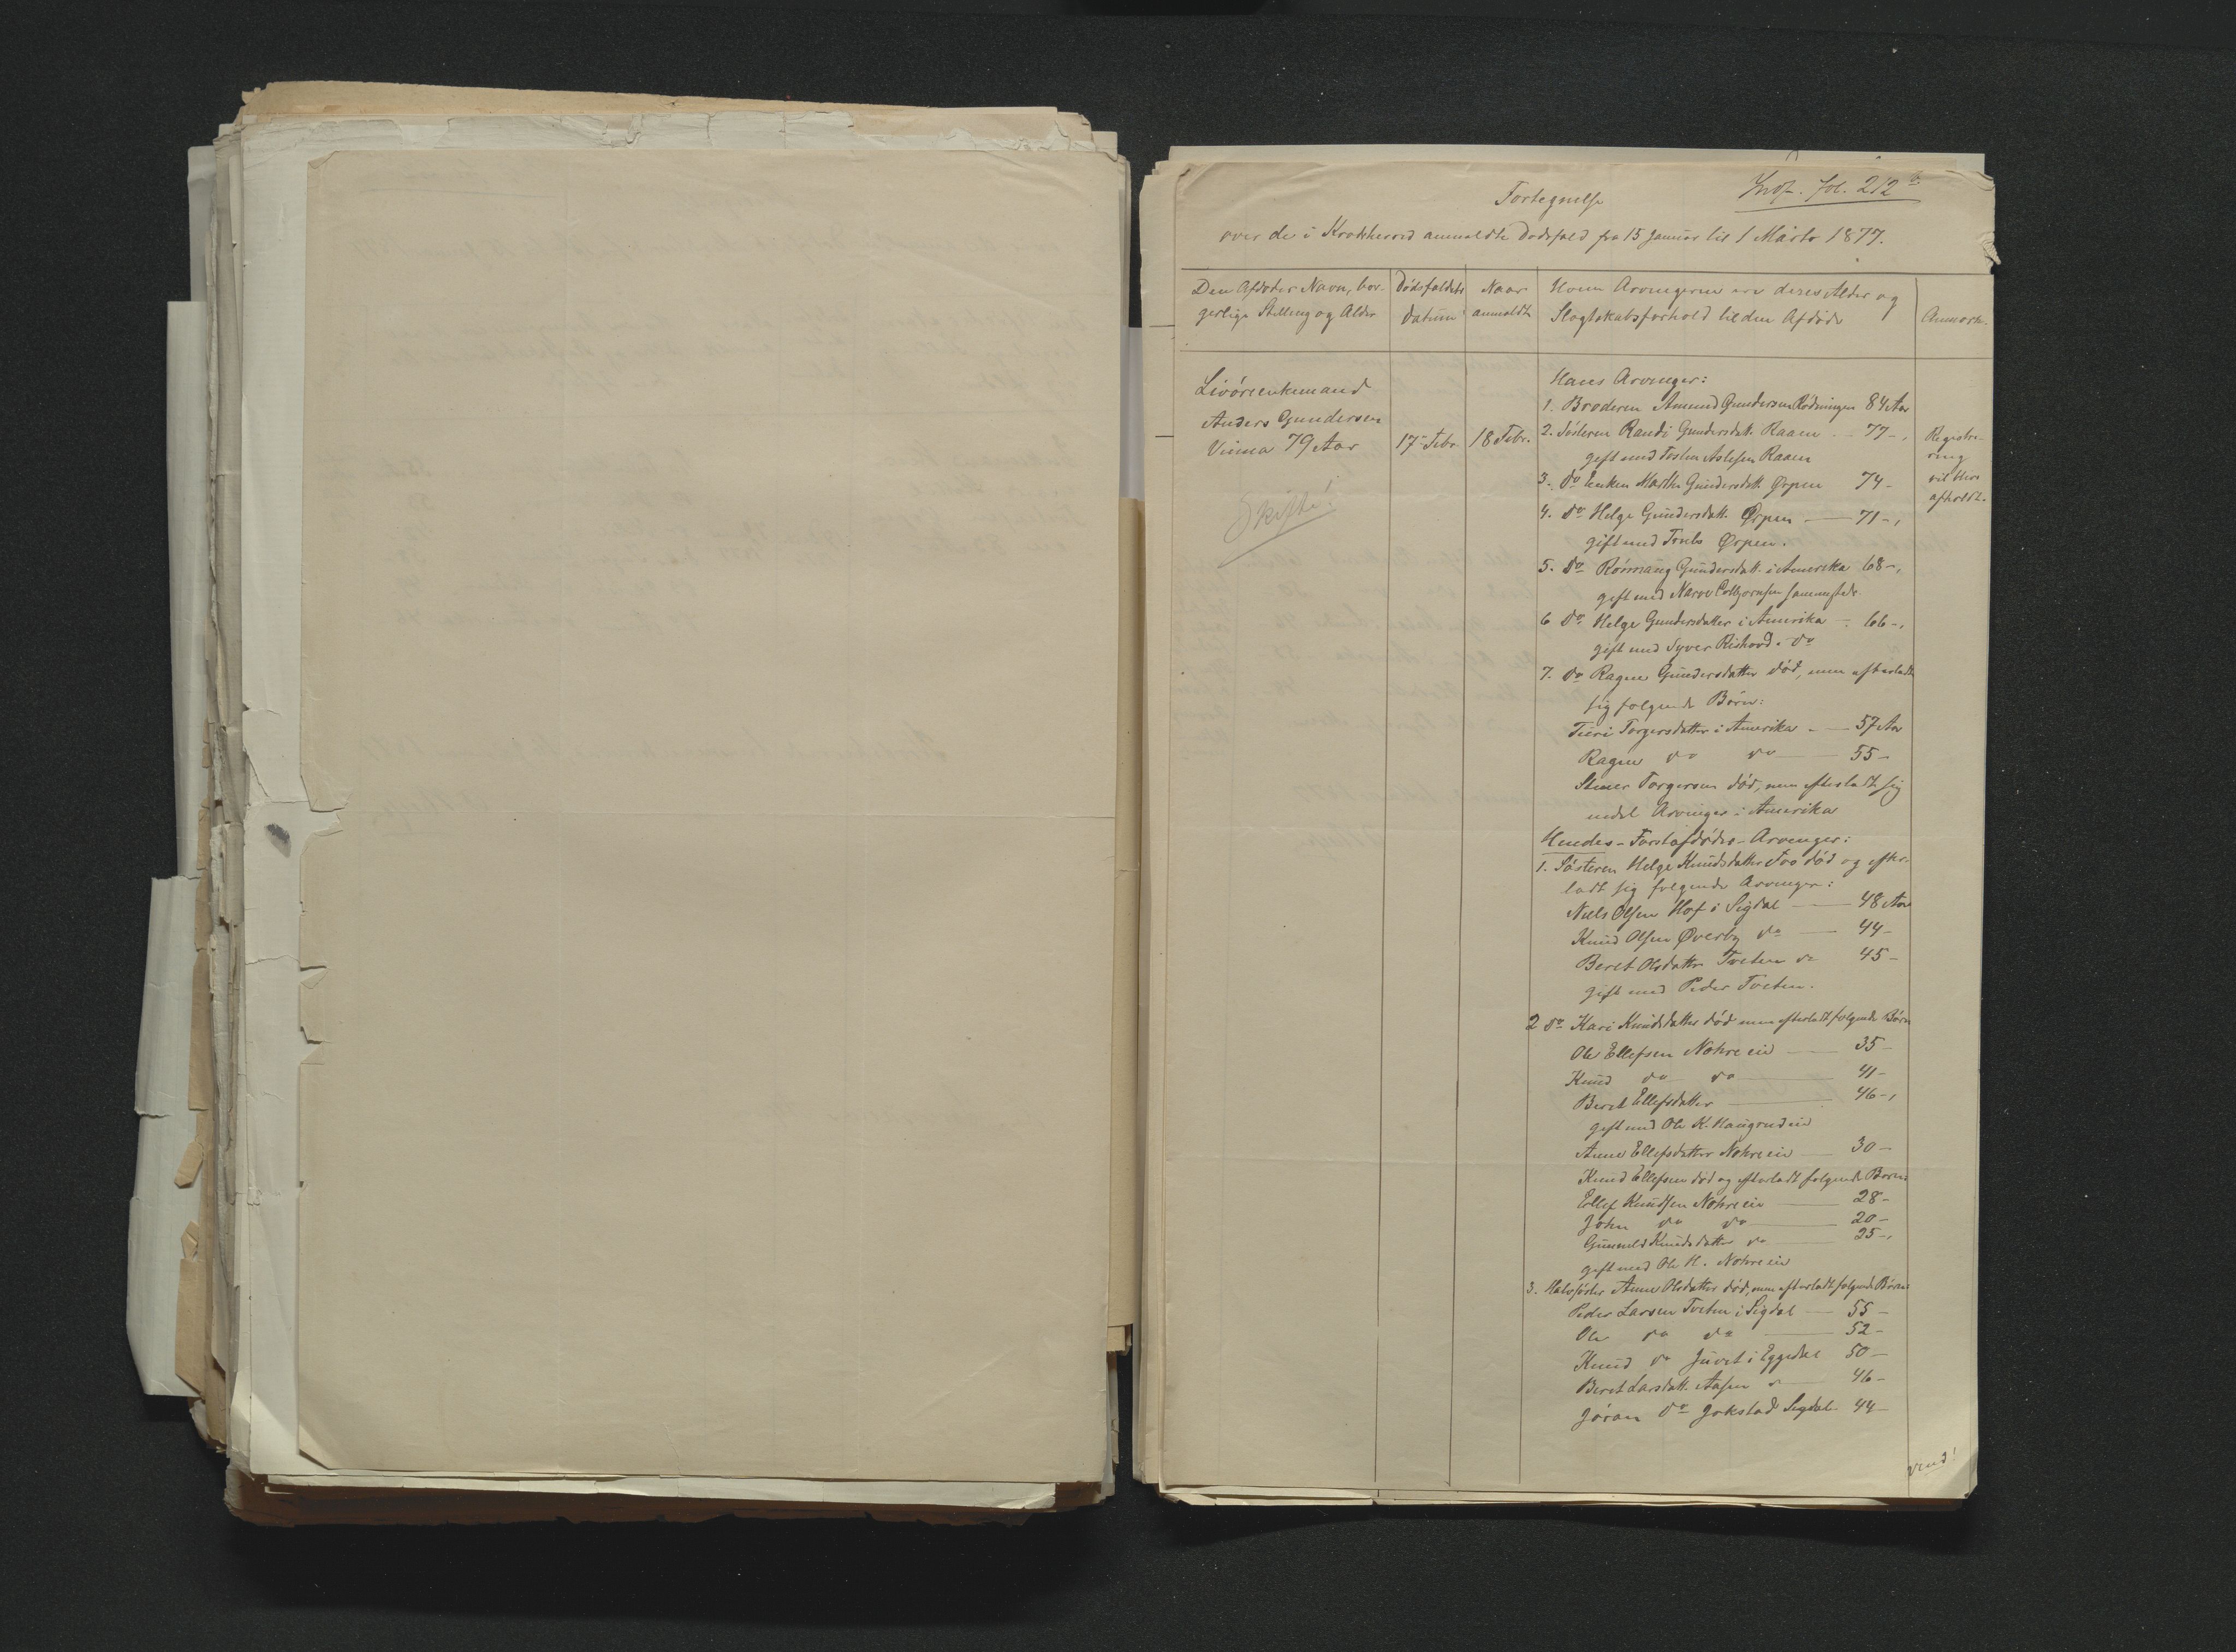 Fol. 212 b
Fortegnelse
over de i Krødsherred anmeldte Dødsfald fra 15 Januar til 1 Marts 1877.
Den Afdødes Navn, bor-
gerlige Stilling og Alder
Dødsfaldets
Datum
Naar
anmeldt
Hvem Arvingerne ere deres Alder og
Slægtskabsforhold til den Afdøde
Anmærk.
Livøreenkemand
Anders Gundersen
Vinna 79 Aar
17 Febr.
18 Febr.
Skifte!
Hans Arvinger:
1. Broderen Amund Gundersen 84 Aar
2. Søsteren Randi Gundersdatt. Raaen — 77 -,
gift med Tosten Aslesen Raaen
3. do Enken Marthe Gundersdatt. Ørpen 74 -
4. do Helge Gundersdatt. Ørpen — 71 -,
gift med Truls Ørpen.
5. do Rønnaug Gundersdatt. i Amerika 68 -,
gift med Narve sammesteds
6 do Helge Gundersdatter i Amerika - 66 -,
gift med Syver Rishovd. do
7. do Ragne Gundersdatter død, men efterladt
sig følgende Børn:
Turi Torgersdatter i Amerika — 57 Aar
Ragne do do — 55 -
Stener Torgersen død, men efterladt sig
endel Arvinger i Amerika
Hendes - Førstafdødes - Arvinger:
1. Søsteren Helge Knudsdatter død og efter-
ladt sig følgende Arvinger:
Niels Olsen Hof i Sigdal — 48 Aar
Knud Olsen Øverby do — 44 -
Beret Olsdatter Tveten do 45 -
gift med Peder Tveten.
2 do Kari Knudsdatter død men efterladt følgende Børn
Ole Ellefsen Nohre eie — 35 -
Knud do do — 41 -
Beret Ellefsdatter — 46 -,
gift med Ole K. Haugrud eie
Anne Ellefsdatter Nohre eie — 30 -
Knud Ellefsen død og efterladt følgende Børn:
Ellef Knudsen Nohre eie — 28 -
John do do — 20 -
Gunnild Knudsdatter do — 25 -,
gift med Ole H. Nohre eie
3. Halvsøster Anne Olsdatter død, men efterladt følgende Børn:
Peder Larsen Tveten i Sigdal — 55 -
Ole do do — 52 -
Knud do Juvet i Eggedal 50 -
Beret Larsdatt. Aasen do — 46 -
Jøran do Jokstad Sigdal 44 -
Registre-
ring
vil blive
afholdt.
Vend!